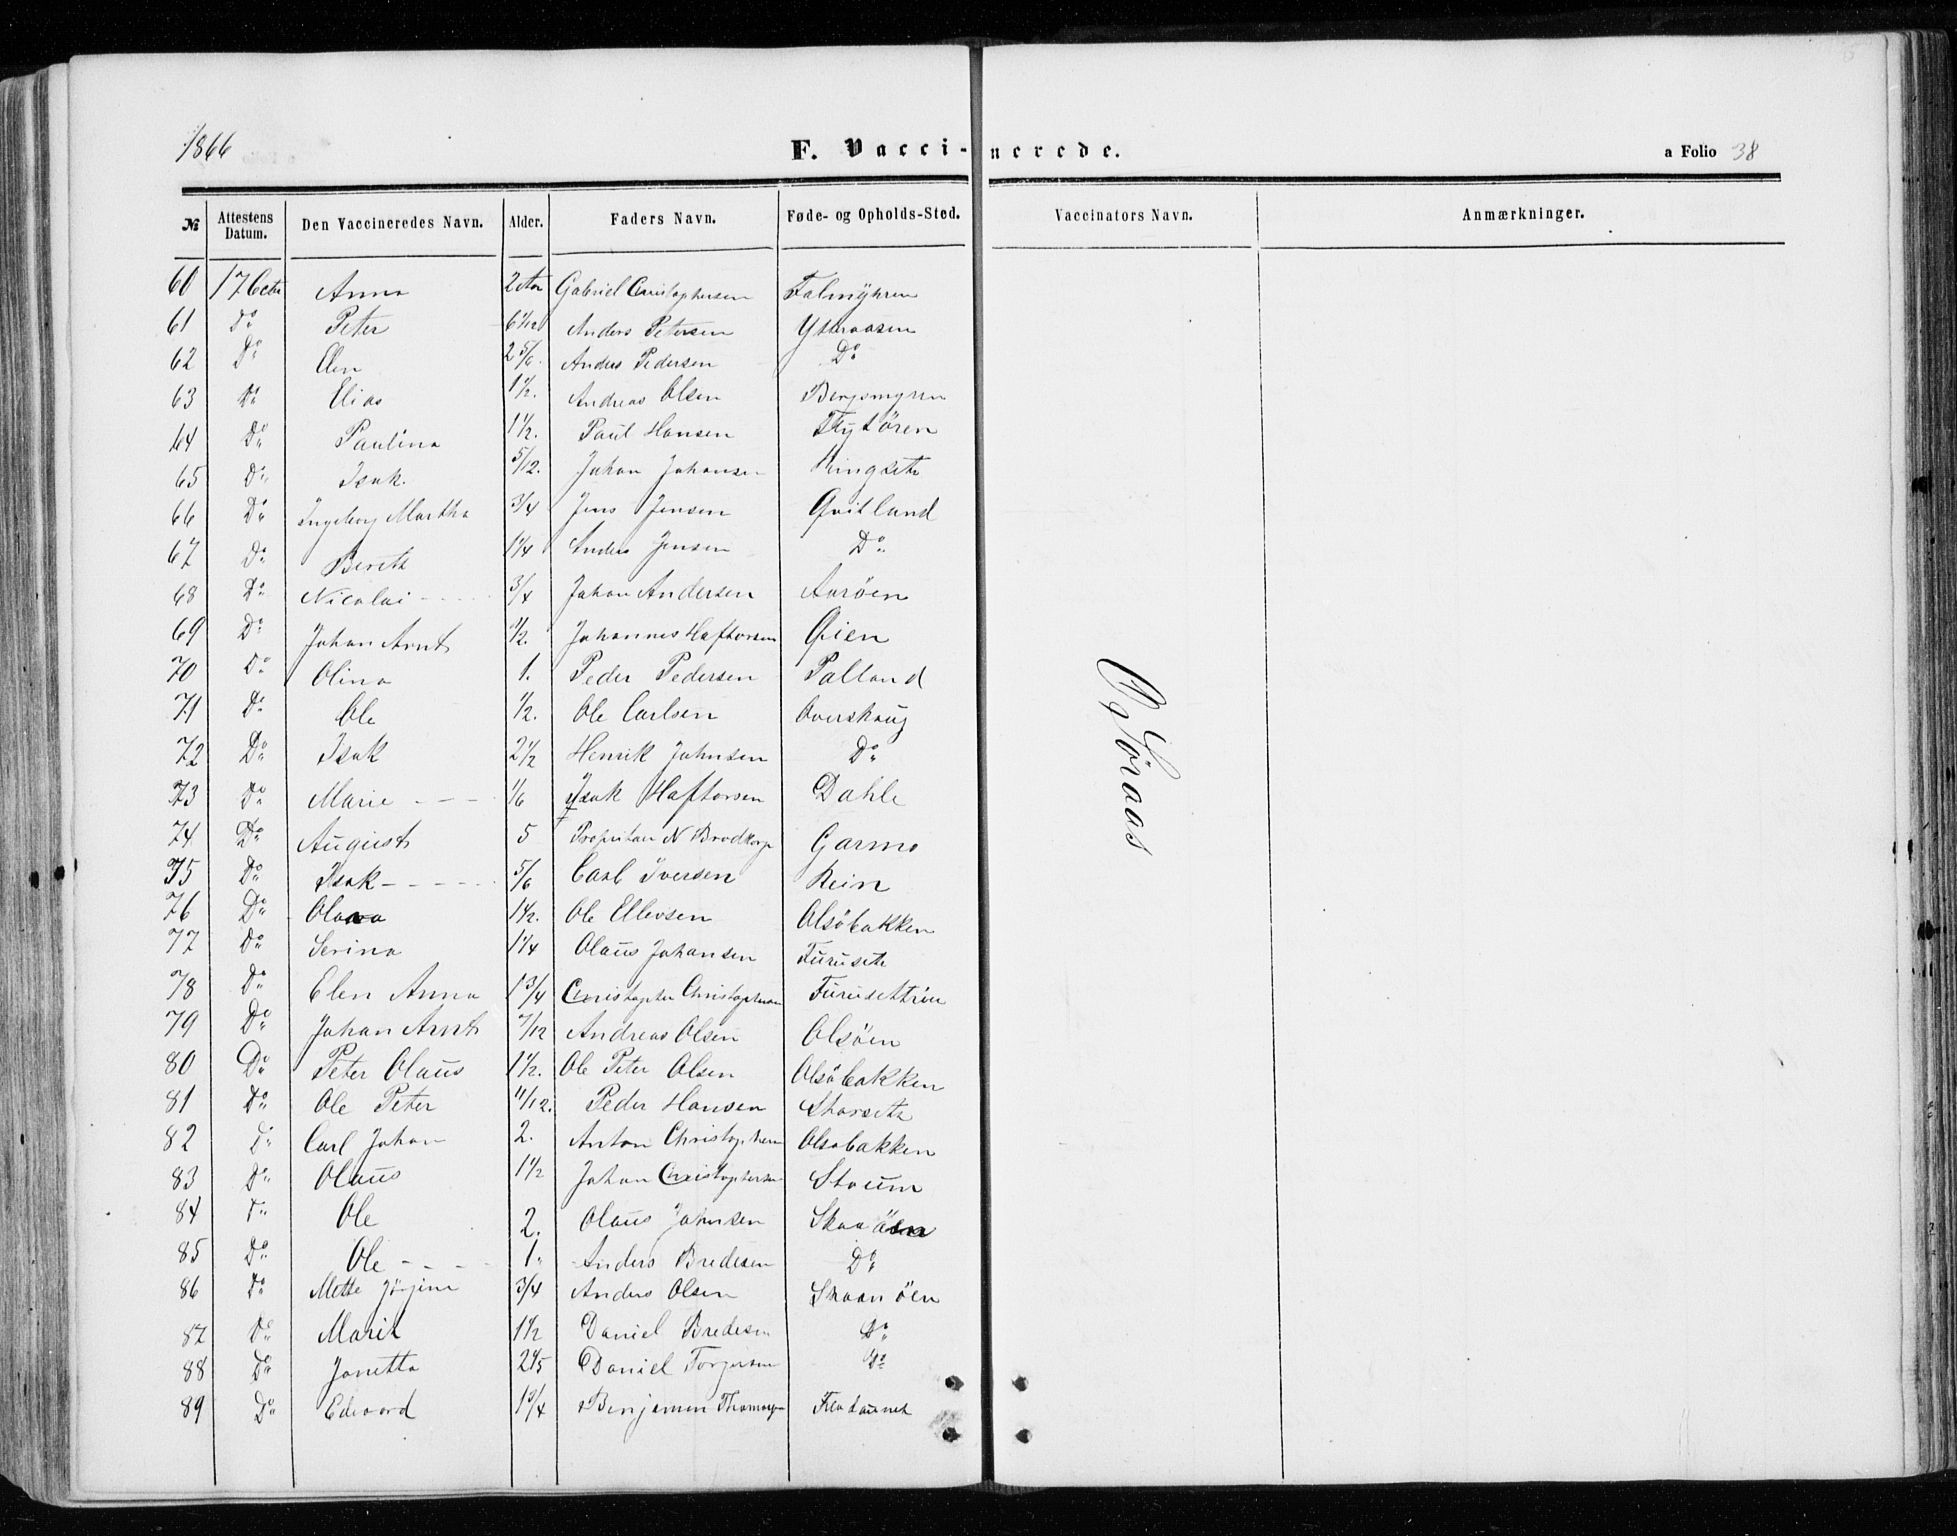 1866 F. Vacci-nerede. a Folio 38
№ Attestens Datum. Den Vaccineredes Navn. Alder. Faders Navn. Føde- og Opholds-Sted. Vaccinators Navn. Anmærkninger.
60 17 Octbr Anna 2 Gabriel Christophersen Falmyhren
61 Do Peter 6 1/12 Anders Petersen Ytteraasen
62 Do Elen 2 5/6. Anders Pedersen Do
63 Do Elias 1 1/2. Andreas Olsen Bergsmyren
64 Do Paulina 1 1/2. Paul Hansen
65 Do Isak. 5/12. Johan Johansen Ringsete
66 Do Ingeborg Martha 3/4 Jens Jensen Qvitland
67 Do Berith 1 1/4 Anders Jensen Do
68 Do Nicolai 3/4 Johan Andersen Aarøen
69 Do Johan Arnt 1/2. Johannes Haftorsen Øien
70 Do Olina 1. Peder Pedersen Palland
71 Do Ole 1/2. Ole Carlsen Overskaug
72 Do Isak 2 1/2 Henrik Johnsen Do
73 Do Marie 1/6 Isak Haftorsen Dahle
74 Do August 5 Propritær N Brodkorp Garmo
75 Do Isak 5/6 Carl Iversen Rein
76 Do 1 1/2. Ole Ellevsen Olsøbakken
77 Do Serina 1 1/4 Olaus Johansen Furusete
78 Do Elen Anna 1 3/4 Christopher Christophersen Furusettrøen
79 Do Johan Arnt 7/12 Andreas Olsen Olsøen
80 Do Peter Olaus 1 1/2. Ole Peter Olsen Olsøbakken
81 Do Ole Peter 11/12. Peder Hansen Storseth
82 Do Carl Johan 2. Anton Christophersen Olsobakken
83 Do Olaus 1 1/2 Johan Christophersen Stoum
84 Do Ole 2. Olaus Johnsen Skaaøen
85 Do Ole 1. Anders Bredesen Do
86 Do Mette Jørgine 3/4 Anders Olsen Skaanøen
87 Do Marit 1 1/2 Daniel Bredesen Do
88 Do Janetta 2 4/5 Daniel Torgersen Do
89 Do Edvard 1 3/4 Benjamin Thomasen
Søraas